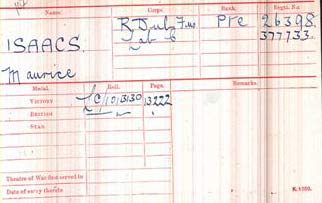 Name. Corps. Rank. Regtl. No.
ISAACS. R Dub Fus Pte 26398
Lab C 377733
Maurice
Medal. Roll. Page. Remarks.
VICTORY C/101B130 13222
BRITISH " "
STAR
Theatre of War first served in
Date of entry therein
K.1380.